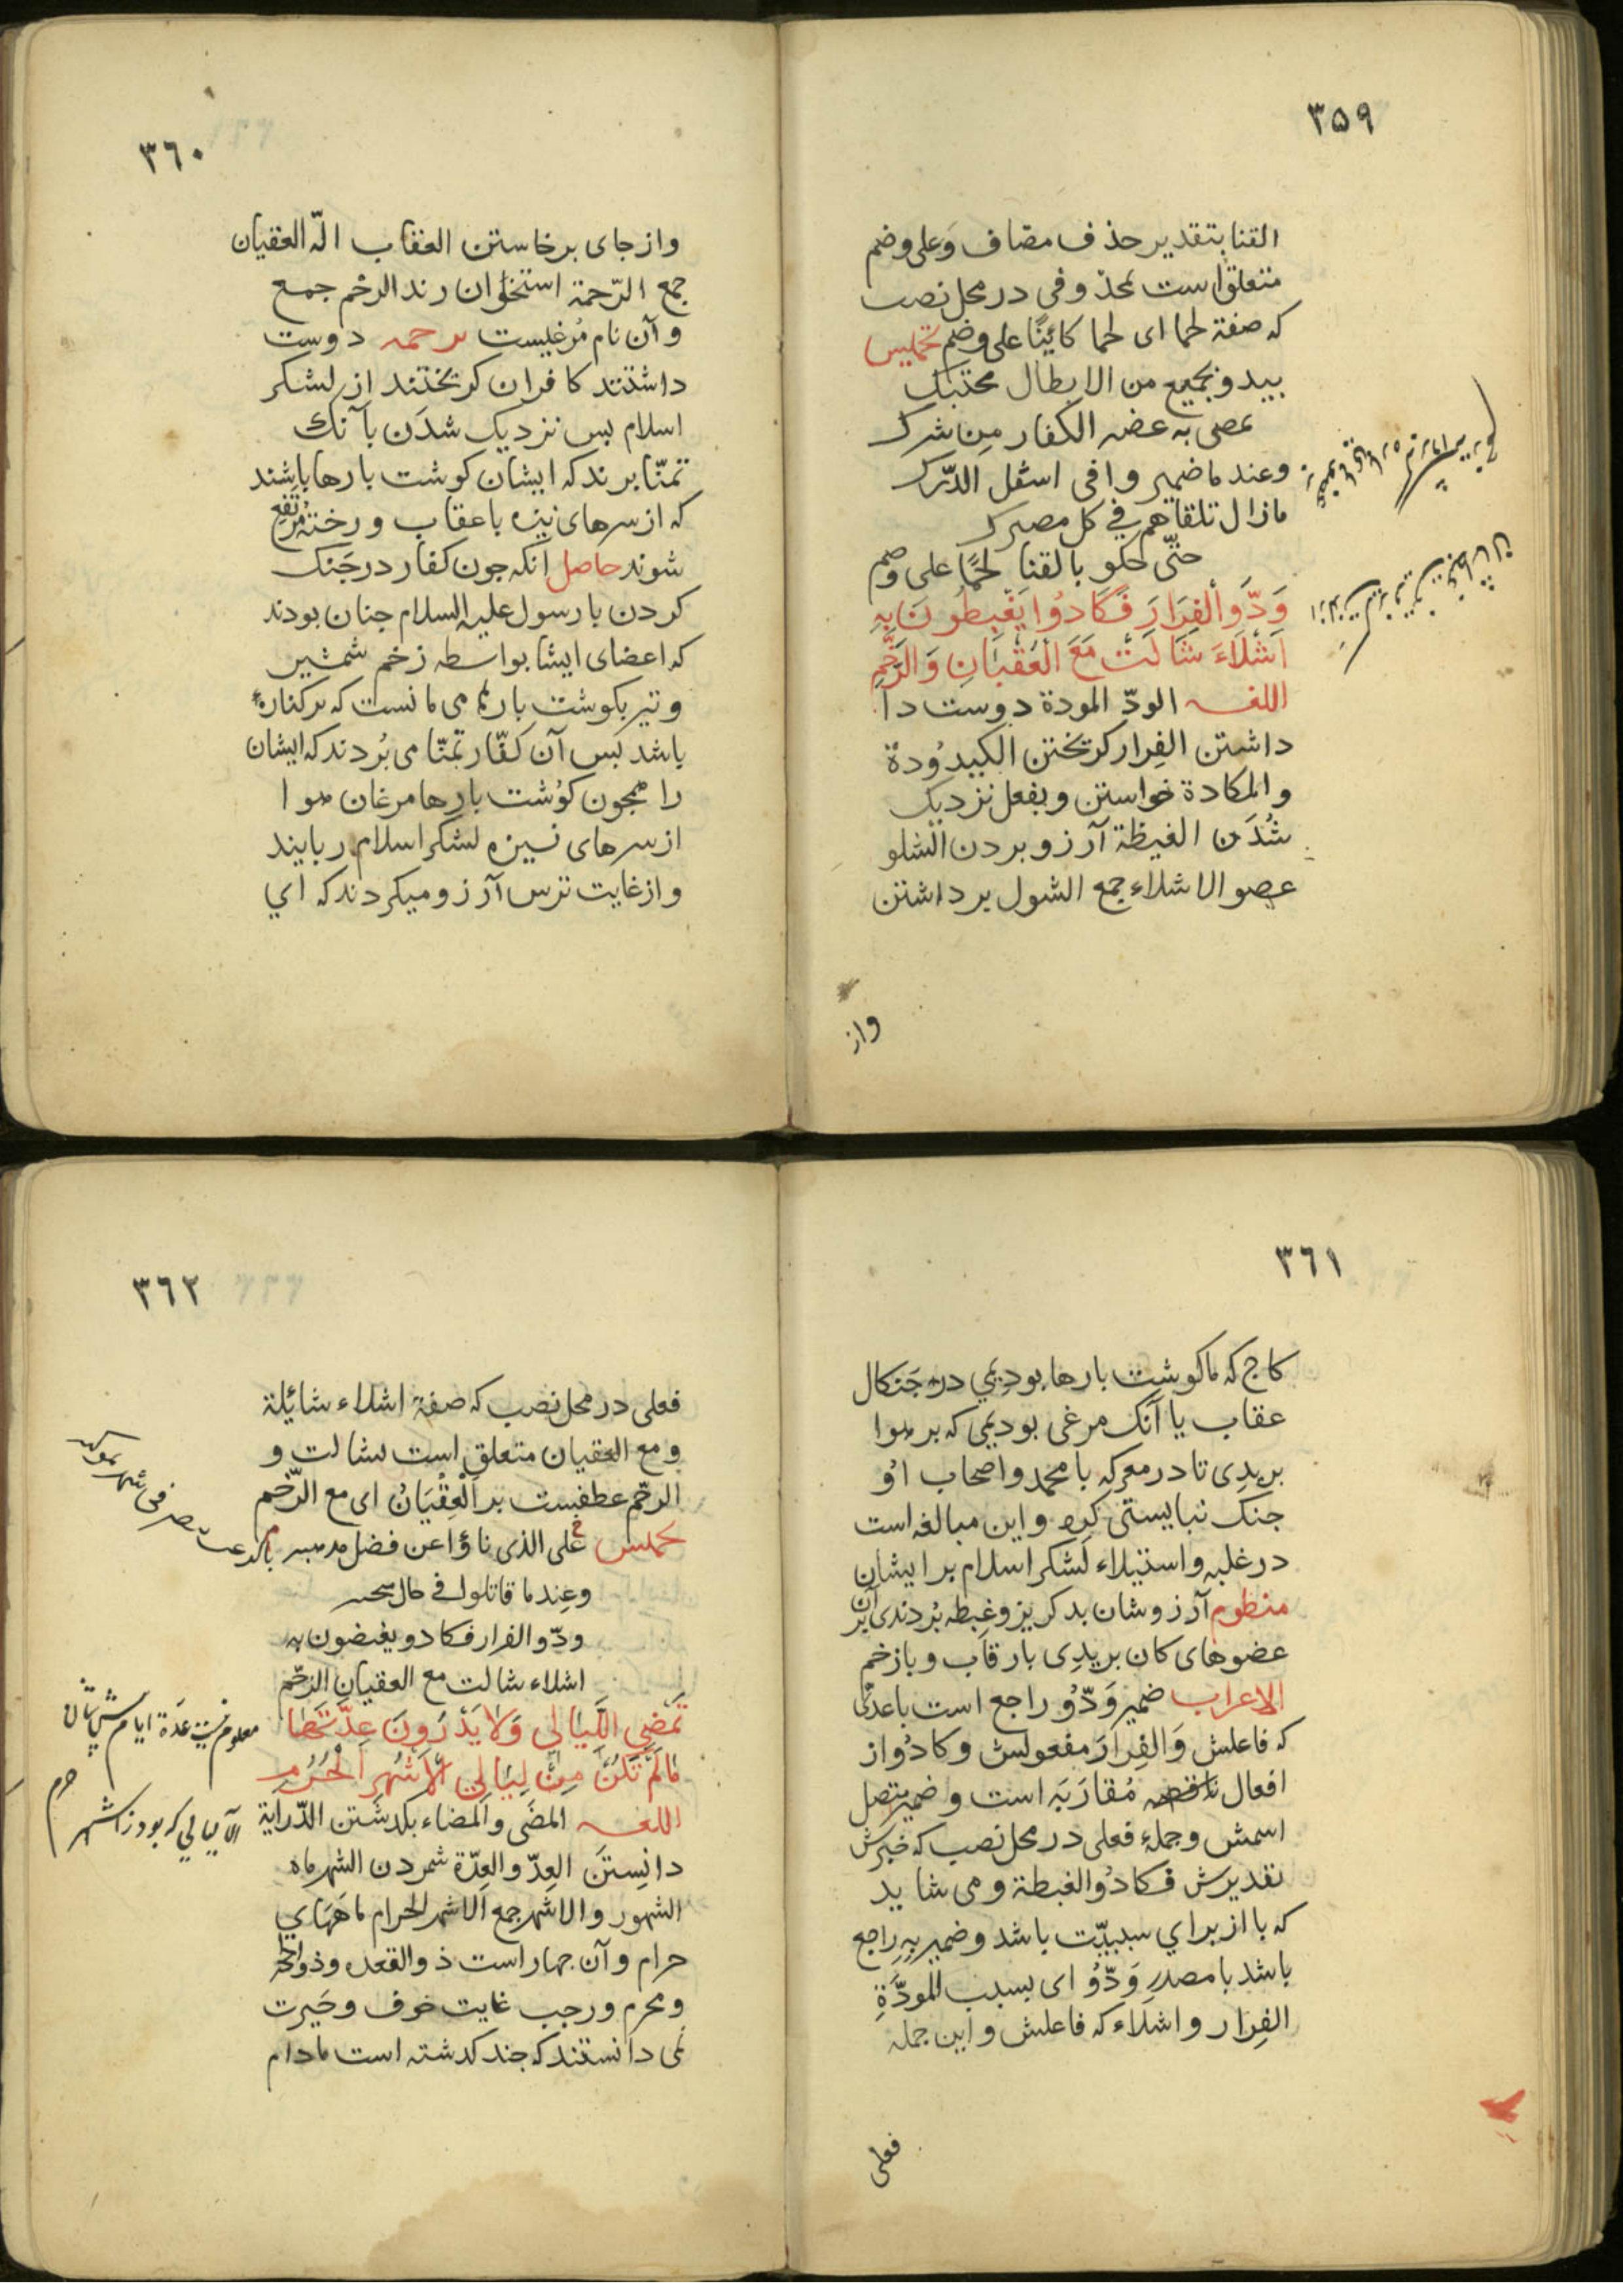 ٣٥٩
القنا بتقدیر حذف مضاف وَعلی وضم
متعلق است بمحذوفی در محل نصب
که صفة لحما ای لحما کائِنًا علی وضم تخمیس
ببید و بجمیع من الابطال محتبک
عصی به عضه الکفار مِن شرک
وعند ما ضمیر وافی اسفل الدّرک
مازال تلقاهم فی کل معترک
حتّی حکو بالقنا لحمًا علی وضم
وَدَّوا الْفِرَارَ فَكَادُوا يَغْبِطُونَ بِهِ
اَشْلَاءَ شَالَتْ مَعَ الْعُقْبَانِ وَالرَّخَمِ
اللغـه الودّ المودة دوست دا
داشتن الفِرار کریختن الکیدوُدة
والمکادة خواستن وبفعل نزدیک
شُدَن الغیظة آرزو بردن الشلو
عصو الاشلاء جمع الشول برداشتن
واز
٣٦٠
واز جای برخاستن العقاب الّه العقبان
جمع الرّحمة استخوان رند الرخم جمع
و آن نام مُرغیست ترحمه دوست
داشتند کافران کریختند از لشکر
اسلام بس نزدیک شدَن بآنک
تمنّا برند که ایشان کوشت بارها باشند
که از سرهای نیزه باعقاب و رخته مرتفع
شوند حاصل انکه جون کفار در جَنک
کردن با رسول علیه السلام جنان بودند
که اعضای ایشا بواسطه زخم شمشیر
و تیر بکوشت باره می مانست که بر کناره
باشد بس آن کفّار تمنّا می بُردند که ایشان
را همجون کوُشت بارها مرغان هوا
از سرهای نسیزه لشکر اسلام ربایند
واز غایت ترس آرزو میکردند که ای
٣٦١
کاج که ماکوشت بارها بودیمی در جَنکال
عقاب یا آنک مرغی بودیمی که بر هوا
بریدِی تا در معرکه با محمد و اصحاب اوُ
جنک نبایستی کرد و این مبالغه است
در غلبه و استیلاء لَشکر اسلام بر ایشان
منظوم آرزوشان بد کریز و غبطه بُردندی بر آن
عضوهای کان بریدِی بار قاب و باز خم
الاعراب ضمیر وَدّوُ راجع است باعدیٰ
که فاعلش وَالفِرارَ مفعولش و کادُواز
افعال مُقارَبَه است و ضمیر متصل
اسمش و جملهٔ فعلی در محل نصب که خبرش
تقدیرش فکادُوالغبطة و می شاید
که با از برای سببیّت باشد و ضمیر بِهِ راجع
باشد با مصدرِ وَدّوُ ای بسبب المودَّةِ
الفِرار و اشلَاء که فاعلش و این جمله
فعلی
٣٦٢
فعلی در محل نصب که صفة اشلاء شائِلة
و مع العقبان متعلق است بشالت و
الرخم عطفست بر العِقْبَانُ ای مع الرّخَم
تخمیس علی الذی ناؤا عن فضل
وعِند ما قاتلوا فی حال
ودّوالفرار فکادو یغبضون به
اشلاء شالت مع العقبان الرّخم
تَمْضِی اللَّيَالِی وَلَا يَدْرُونَ عِدَّتَهَا
مَالَمْ تَكُنْ مِنْ لَيَالِی الْاَشْهُرِ الْحُرُمِ
اللغـه المضَی والمضاء بکدشتن الدّرایة
دانِستَن العِدّ والعِدّة شمردن الشهر ماه
الشهور والاشهر جمع الاشهر الحرام ماههای
حرام و آن جهار است ذوالقعده وذوالحجه
ومحرم و رجب غایت خوف و حَیرت
نمی دانستند که جند کدشته است مادام
معلوم نیست عدة ایامش شان
الا لیالی که بود ز اشهر حرم